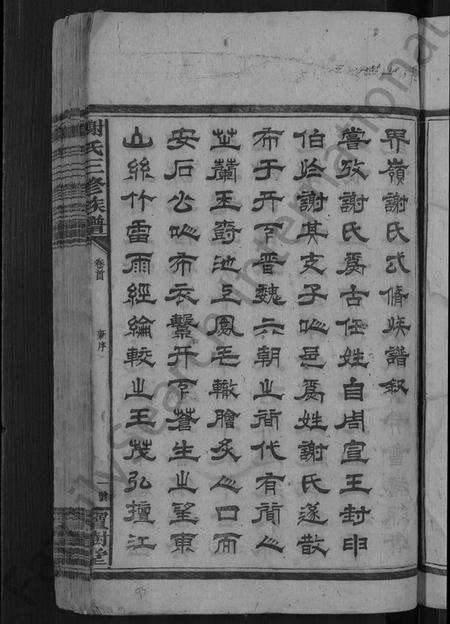 界嶺謝氏弍脩族譜敘
嘗攷謝氏爲古任姓自周宣王封申
伯於謝其支子以邑爲姓謝氏遂散
布于天下晉魏六朝之間代有聞人
芝蘭玉樹池上鳳毛轍膾炙人口而
安石公以布衣繫天下蒼生之望東
山絲竹雷雨經綸較之王茂弘擅江
謝氏三修族譜
卷首
新序
一號
寶樹堂
FamilySearch International